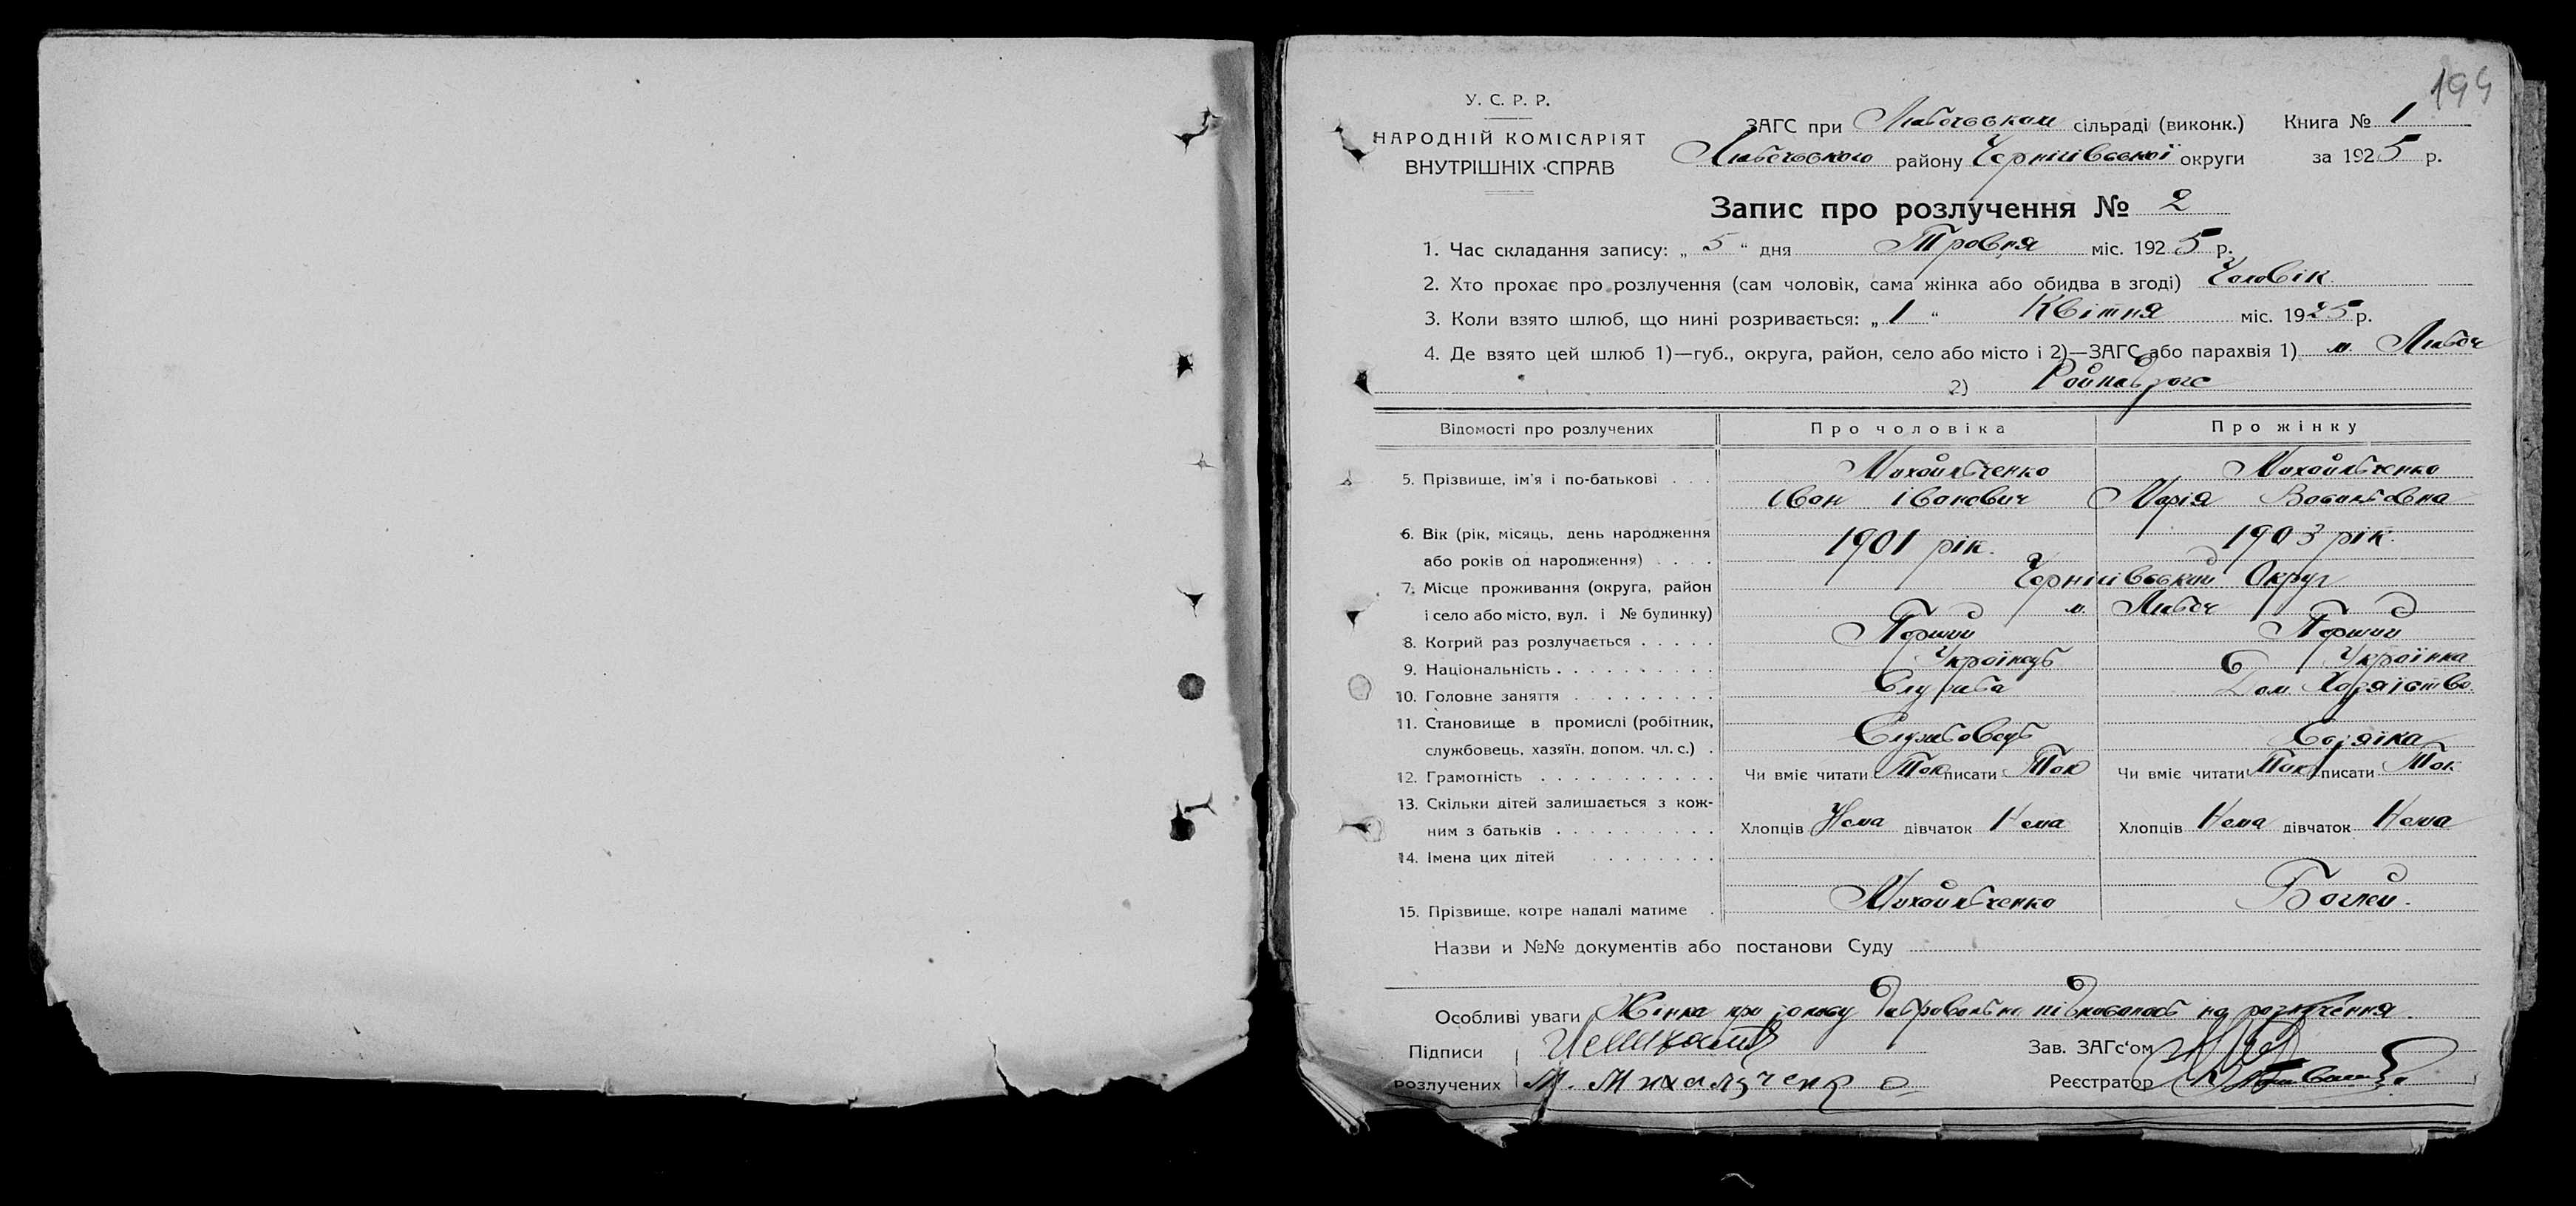 194
У. С. Р. Р.
НАРОДНІЙ КОМІСАРІЯТ
ВНУТРІШНІХ СПРАВ
ЗАГС при Любечським сільраді (виконк.) Книга № 1
Любечського району Чернігівської округи за 1925 р.
Запис про розлучення № 2
1. Час складання запису: „ 5 “ дня Травня міс. 1925 р.
2. Хто прохає про розлучення (сам чоловік, сама жінка або обидва в згоді) Чоловік
3. Коли взято шлюб, що нині розривається: „ 1 “ Квітня міс. 1925 р.
4. Де взято цей шлюб 1)—губ., округа, район, село або місто і 2)—ЗАГС або парахвія 1) м. Любеч
2)
Відомості про розлучених Про чоловіка Про жінку
5. Прізвище, ім'я і по-батькові . . . Михайльченко Михайльченко
Іван Іванович Марія
6. Вік (рік, місяць, день народження
або років од народження) . . . . 1901 рік. 1903 рік.
7. Місце проживання (округа, район Чернігівський Округ
і село або місто, вул. і № будинку) м. Любеч
8. Котрий раз розлучається . . . . . Перший Перший
9. Національність . . . . . . . . . . Українець Українка
10. Головне заняття . . . . . . . . . Служба Дом. Хозяіство.
11. Становище в промислі (робітник,
службовець, хазяїн, допом. чл. с.) . Службовець Хозяїка
12. Грамотність . . . . . . . . . . . Чи вміє читати Так писати Так Чи вміє читати Так писати Так
13. Скільки дітей залишається з кож-
ним з батьків . . . . . . . . . . Хлопців Нема дівчаток Нема Хлопців Нема дівчаток Нема
14. Імена цих дітей . . . . . . . .
15. Прізвище, котре надалі матиме . Михайльченко Баглей.
Назви и №№ документів або постанови Суду
Особливі уваги Жінка на розлучення.
Підписи
розлучених М. Михальченко
Зав. ЗАГс‘ом
Реєстратор